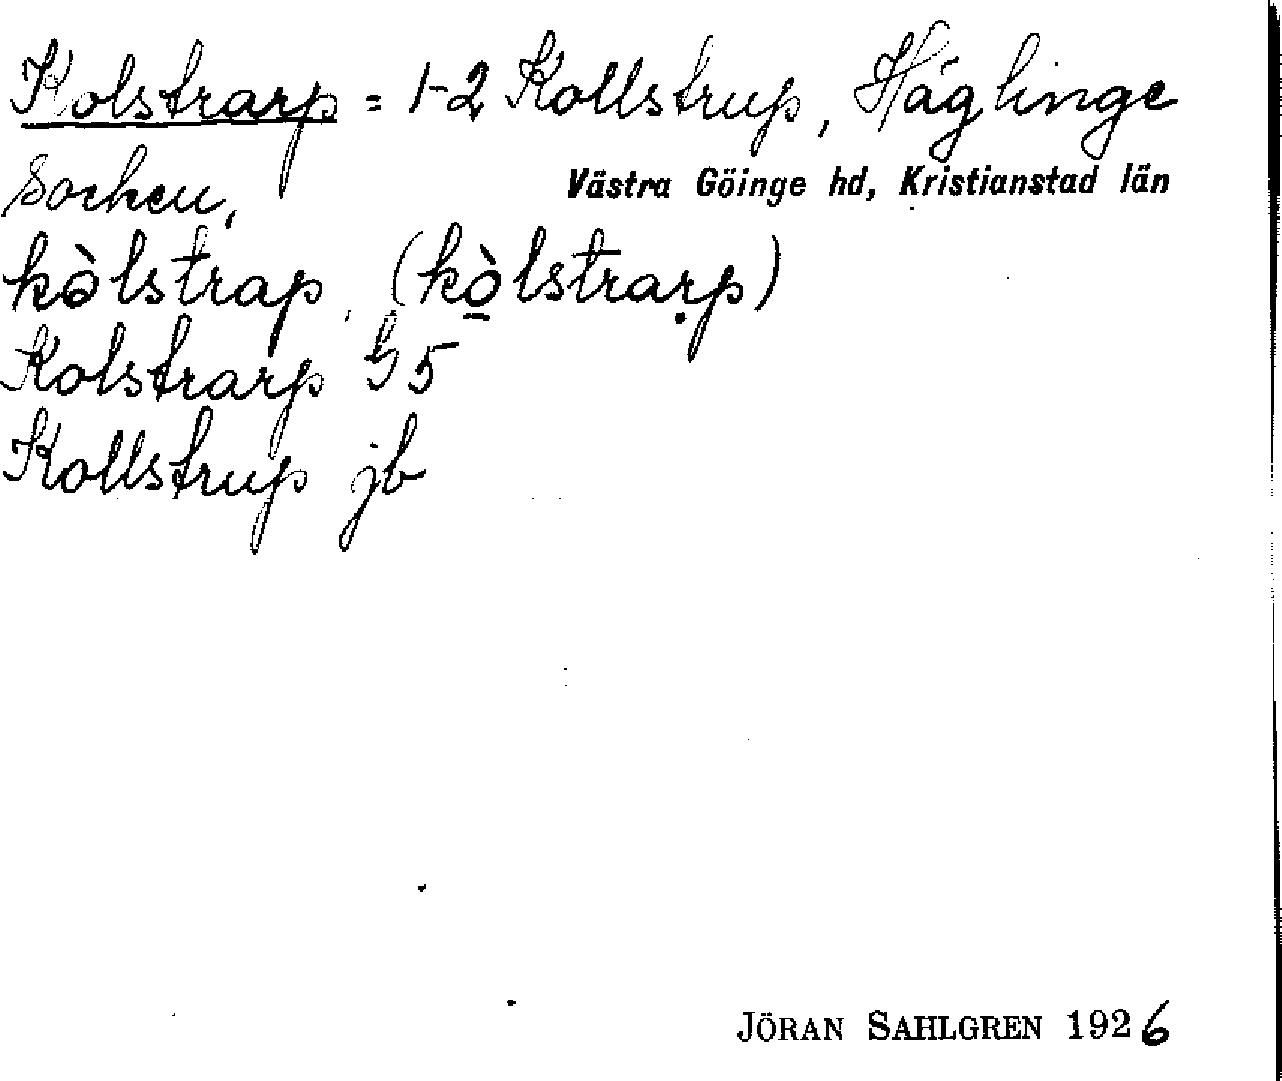 Kolstrarp = 1-2 Kollstrup, Häglinge
Socken, Västra Göinge hd, Kristianstad län
kòlstrap, (kò̲lstraṛp)
Kolstrarp G 5
Kollstrup jb
JÖRAN SAHLGREN 1926